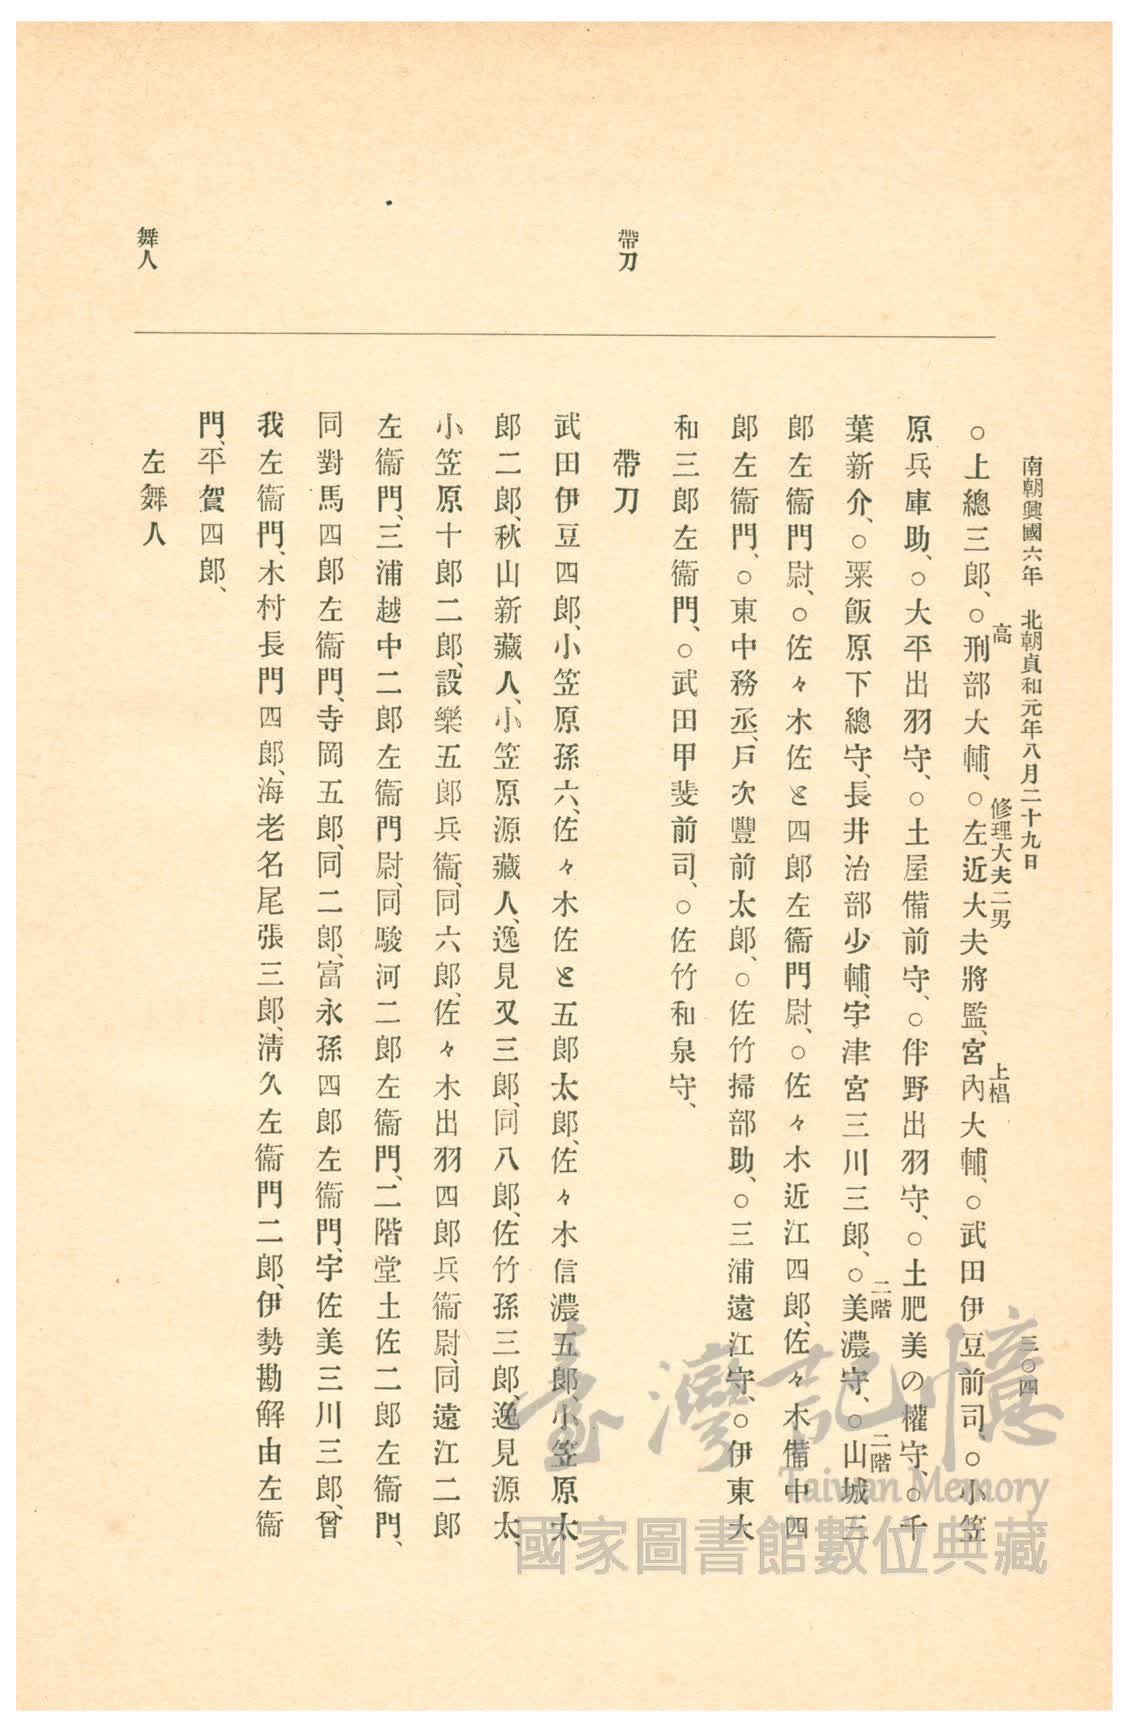 南朝興國六年 北朝貞和元年八月二十九日 三〇四
高 修理大夫二男 上椙
○上總三郎、○刑部大輔、○左近大夫將監、宮內大輔、○武田伊豆前司、○小笠
原兵庫助、○大平出羽守、○土屋備前守、○伴野出羽守、○土肥美の權守、○千
二階 二階
葉新介、○粟飯原下總守、長井治部少輔、宇津宮三川三郎、○美濃守、○山城三
郎左衞門尉、○佐々木佐と四郎左衞門尉、○佐々木近江四郎、佐々木備中四
郎左衞門、○東中務丞、戶次豐前太郎、○佐竹掃部助、○三浦遠江守、○伊東大
和三郎左衞門、○武田甲斐前司、○佐竹和泉守、
帶刀
帶刀
武田伊豆四郎、小笠原孫六、佐々木佐と五郎太郎、佐々木信濃五郎、小笠原太
郎二郎、秋山新藏人、小笠原源藏人、逸見又三郎、同八郎、佐竹孫三郎、逸見源太、
小笠原十郎二郎、設樂五郎兵衞、同六郎、佐々木出羽四郎兵衞尉、同遠江二郎
左衞門、三浦越中二郎左衞門尉、同駿河二郎左衞門、二階堂土佐二郎左衞門、
同對馬四郎左衞門、寺岡五郎、同二郎、富永孫四郎左衞門、宇佐美三川三郎、曾
我左衞門、木村長門四郎、海老名尾張三郎、淸久左衞門二郎、伊勢勘解由左衞
門、平賀四郎、
舞人
左舞人
臺灣記憶
Taiwan Memory
國家圖書館數位典藏